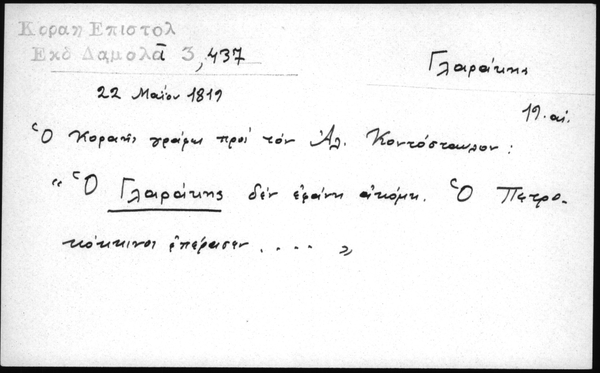 Κοραη Επιστολ
Εκδ Δαμολᾶ 3, 437
Γλαράκης
22 Μαΐου 1819
19. αἰ.
Ὁ Κοραῆς γράφει πρὸς τὸν Ἀλ. Κοντόσταυλον:
"Ὁ Γλαράκης δέν ἐφάνη ἀκόμη. Ὁ Πετρο-
κόκκινος ἐπέρασεν .... "